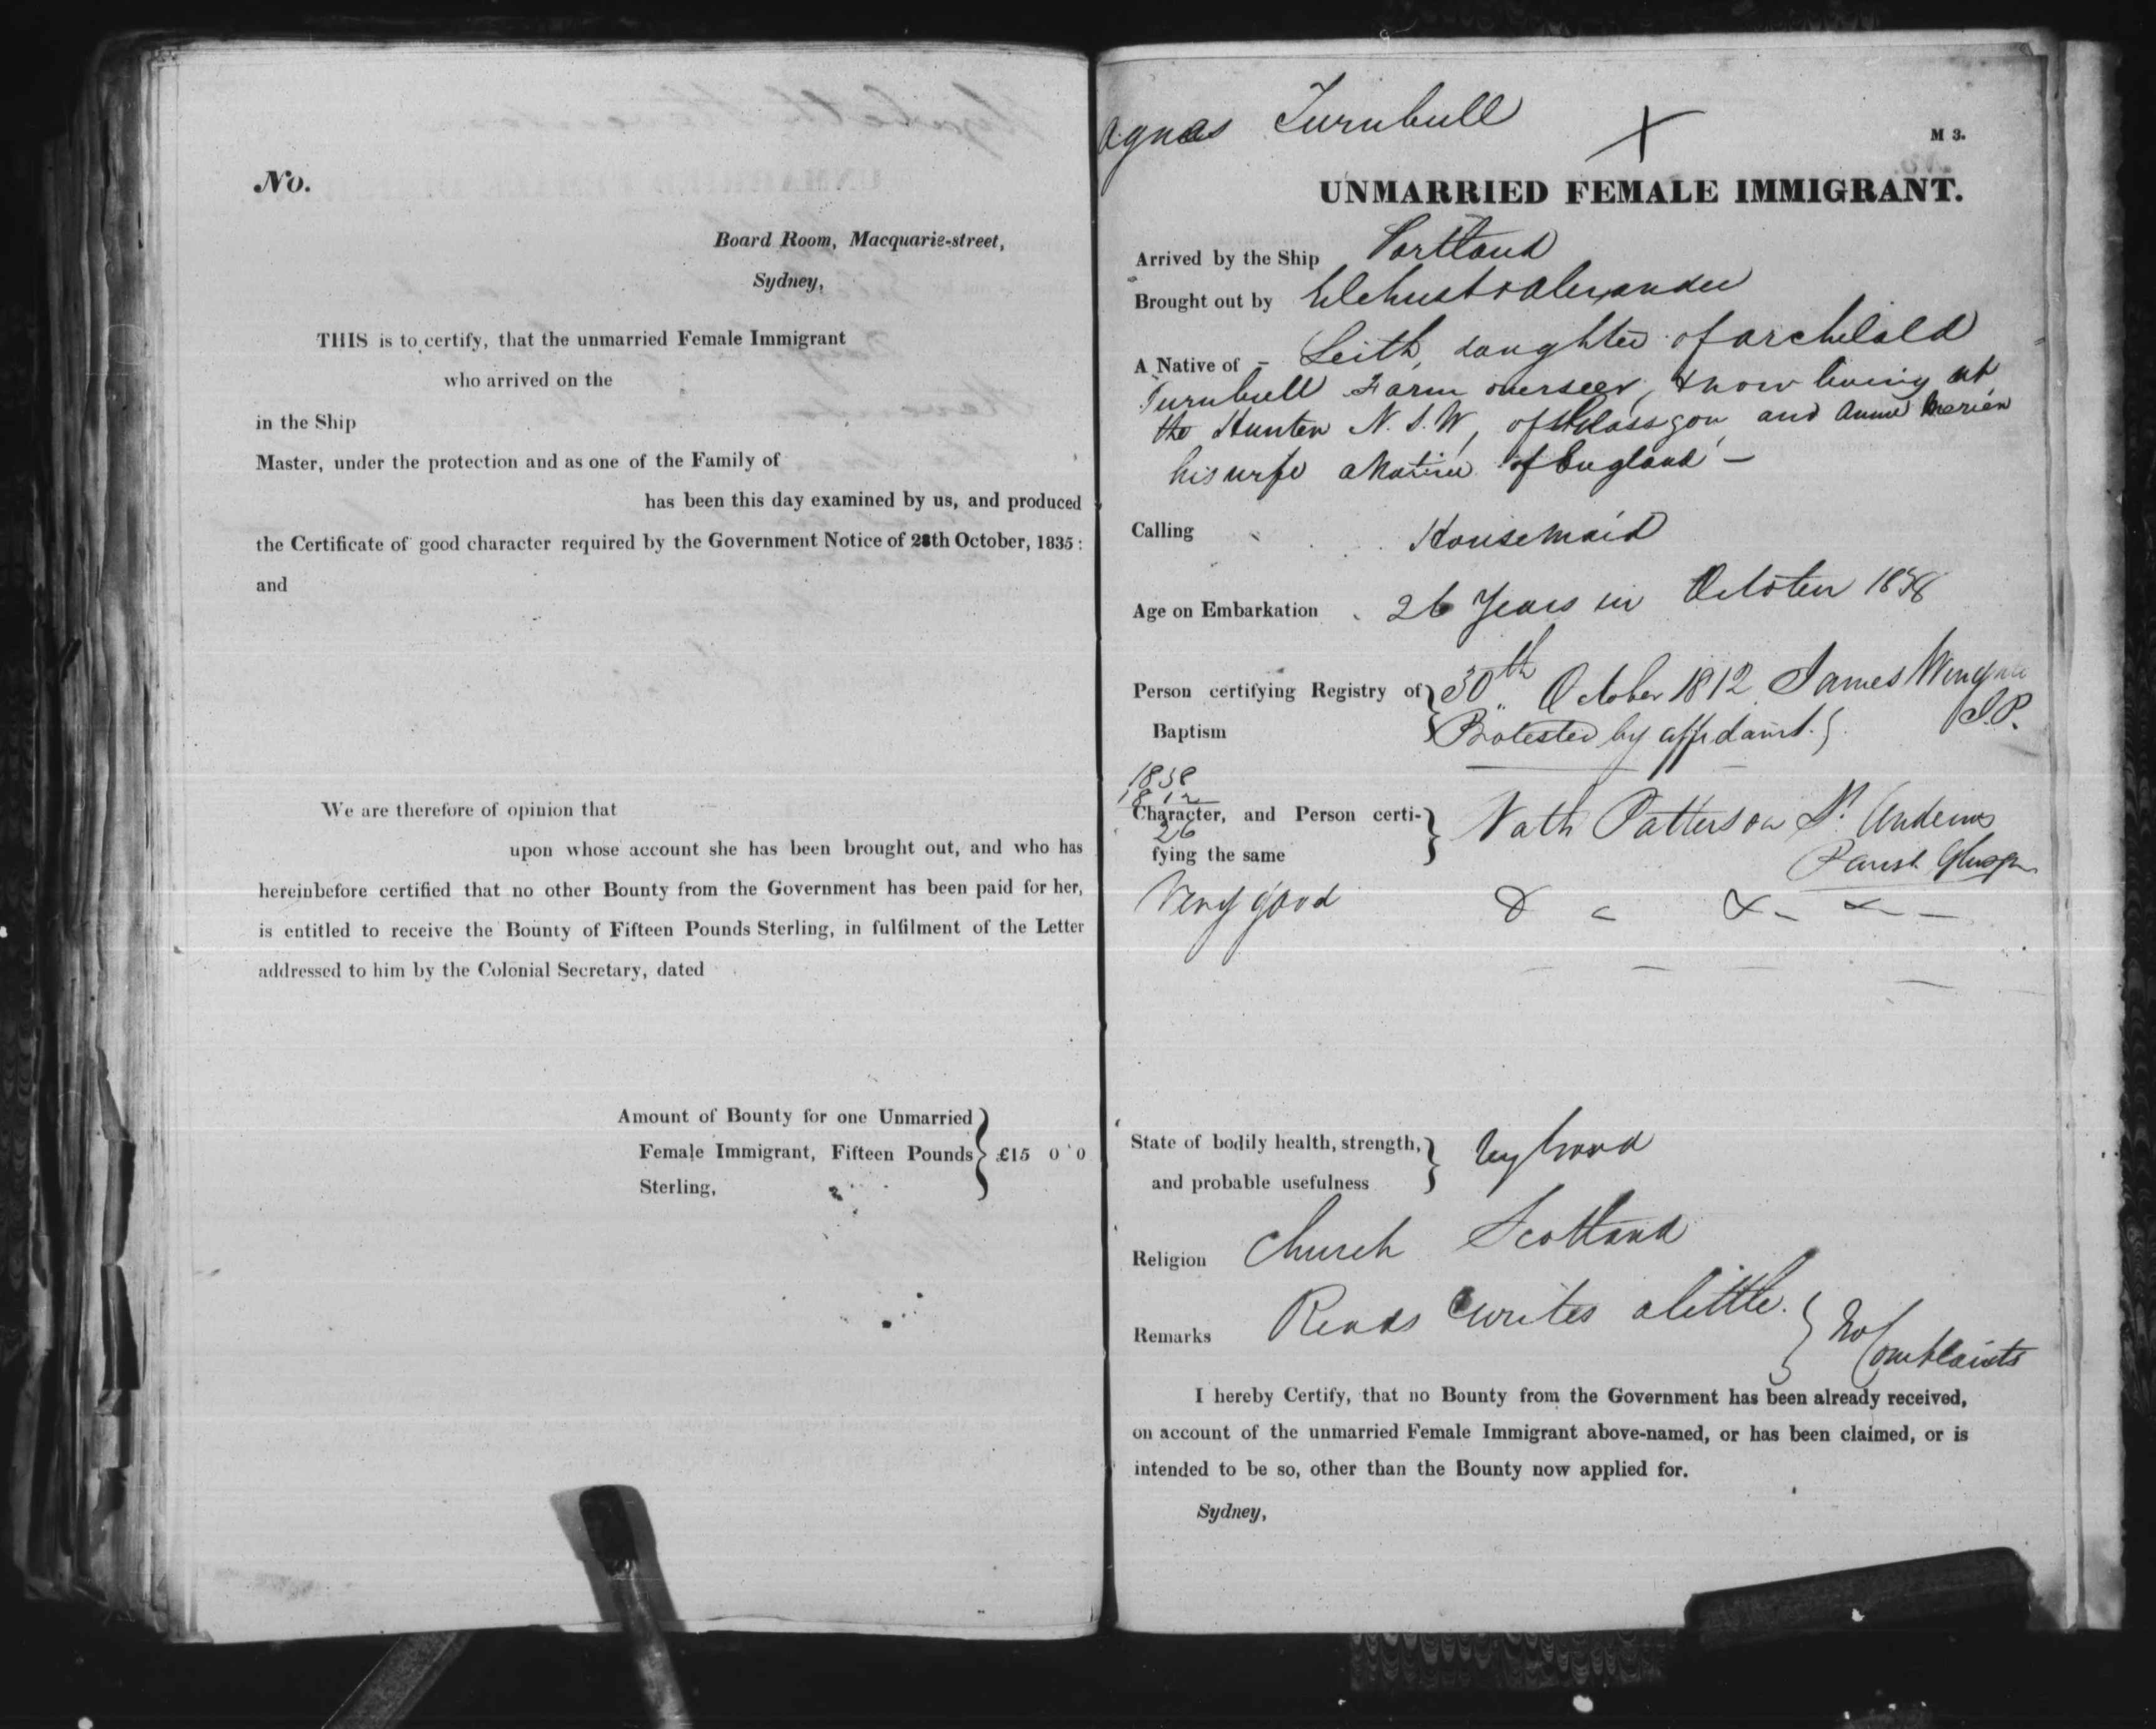 No.
Board Room, Macquarie-street,
Sydney,
THIS is to certify, that the unmarried Female Immigrant
who arrived on the
in the Ship
Master, under the protection and as one of the Family of
has been this day examined by us, and produced
the Certificate of good character required by the Government Notice of 28th October, 1835:
and
We are therefore of opinion that
upon whose account she has been brought out, and who has
hereinbefore certified that no other Bounty from the Government has been paid for her,
is entitled to receive the Bounty of Fifteen Pounds Sterling, in fulfilment of the Letter
addressed to him by the Colonial Secretary, dated
Amount of Bounty for one Unmarried
Female Immigrant, Fifteen Pounds } £15 0 0
Sterling,
Agnes Turnbull X
M 3.
UNMARRIED FEMALE IMMIGRANT.
Arrived by the Ship Portland
Brought out by Alexander
A Native of - Leith, daughter of Archibald
Turnbull Farm overseer, & now living at
the Hunter N.S.W, of Glassgow and Annie Marien
his wife a Native of England -
Calling Housemaid
Age on Embarkation 26 Years in October 1838
Person certifying Registry of } 30th October 1812 James
Baptism } Protested by affidavit. } J.P.
1838
1812
Character, and Person certi- } Nath Patterson St. Andrews
26
fying the same Parish Glasgow
Very good
State of bodily health, strength, } Very Good
and probable usefulness
Religion Church Scotland
Remarks Reads & writes a little. } No
Complaints
I hereby Certify, that no Bounty from the Government has been already received,
on account of the unmarried Female Immigrant above-named, or has been claimed, or is
intended to be so, other than the Bounty now applied for.
Sydney,